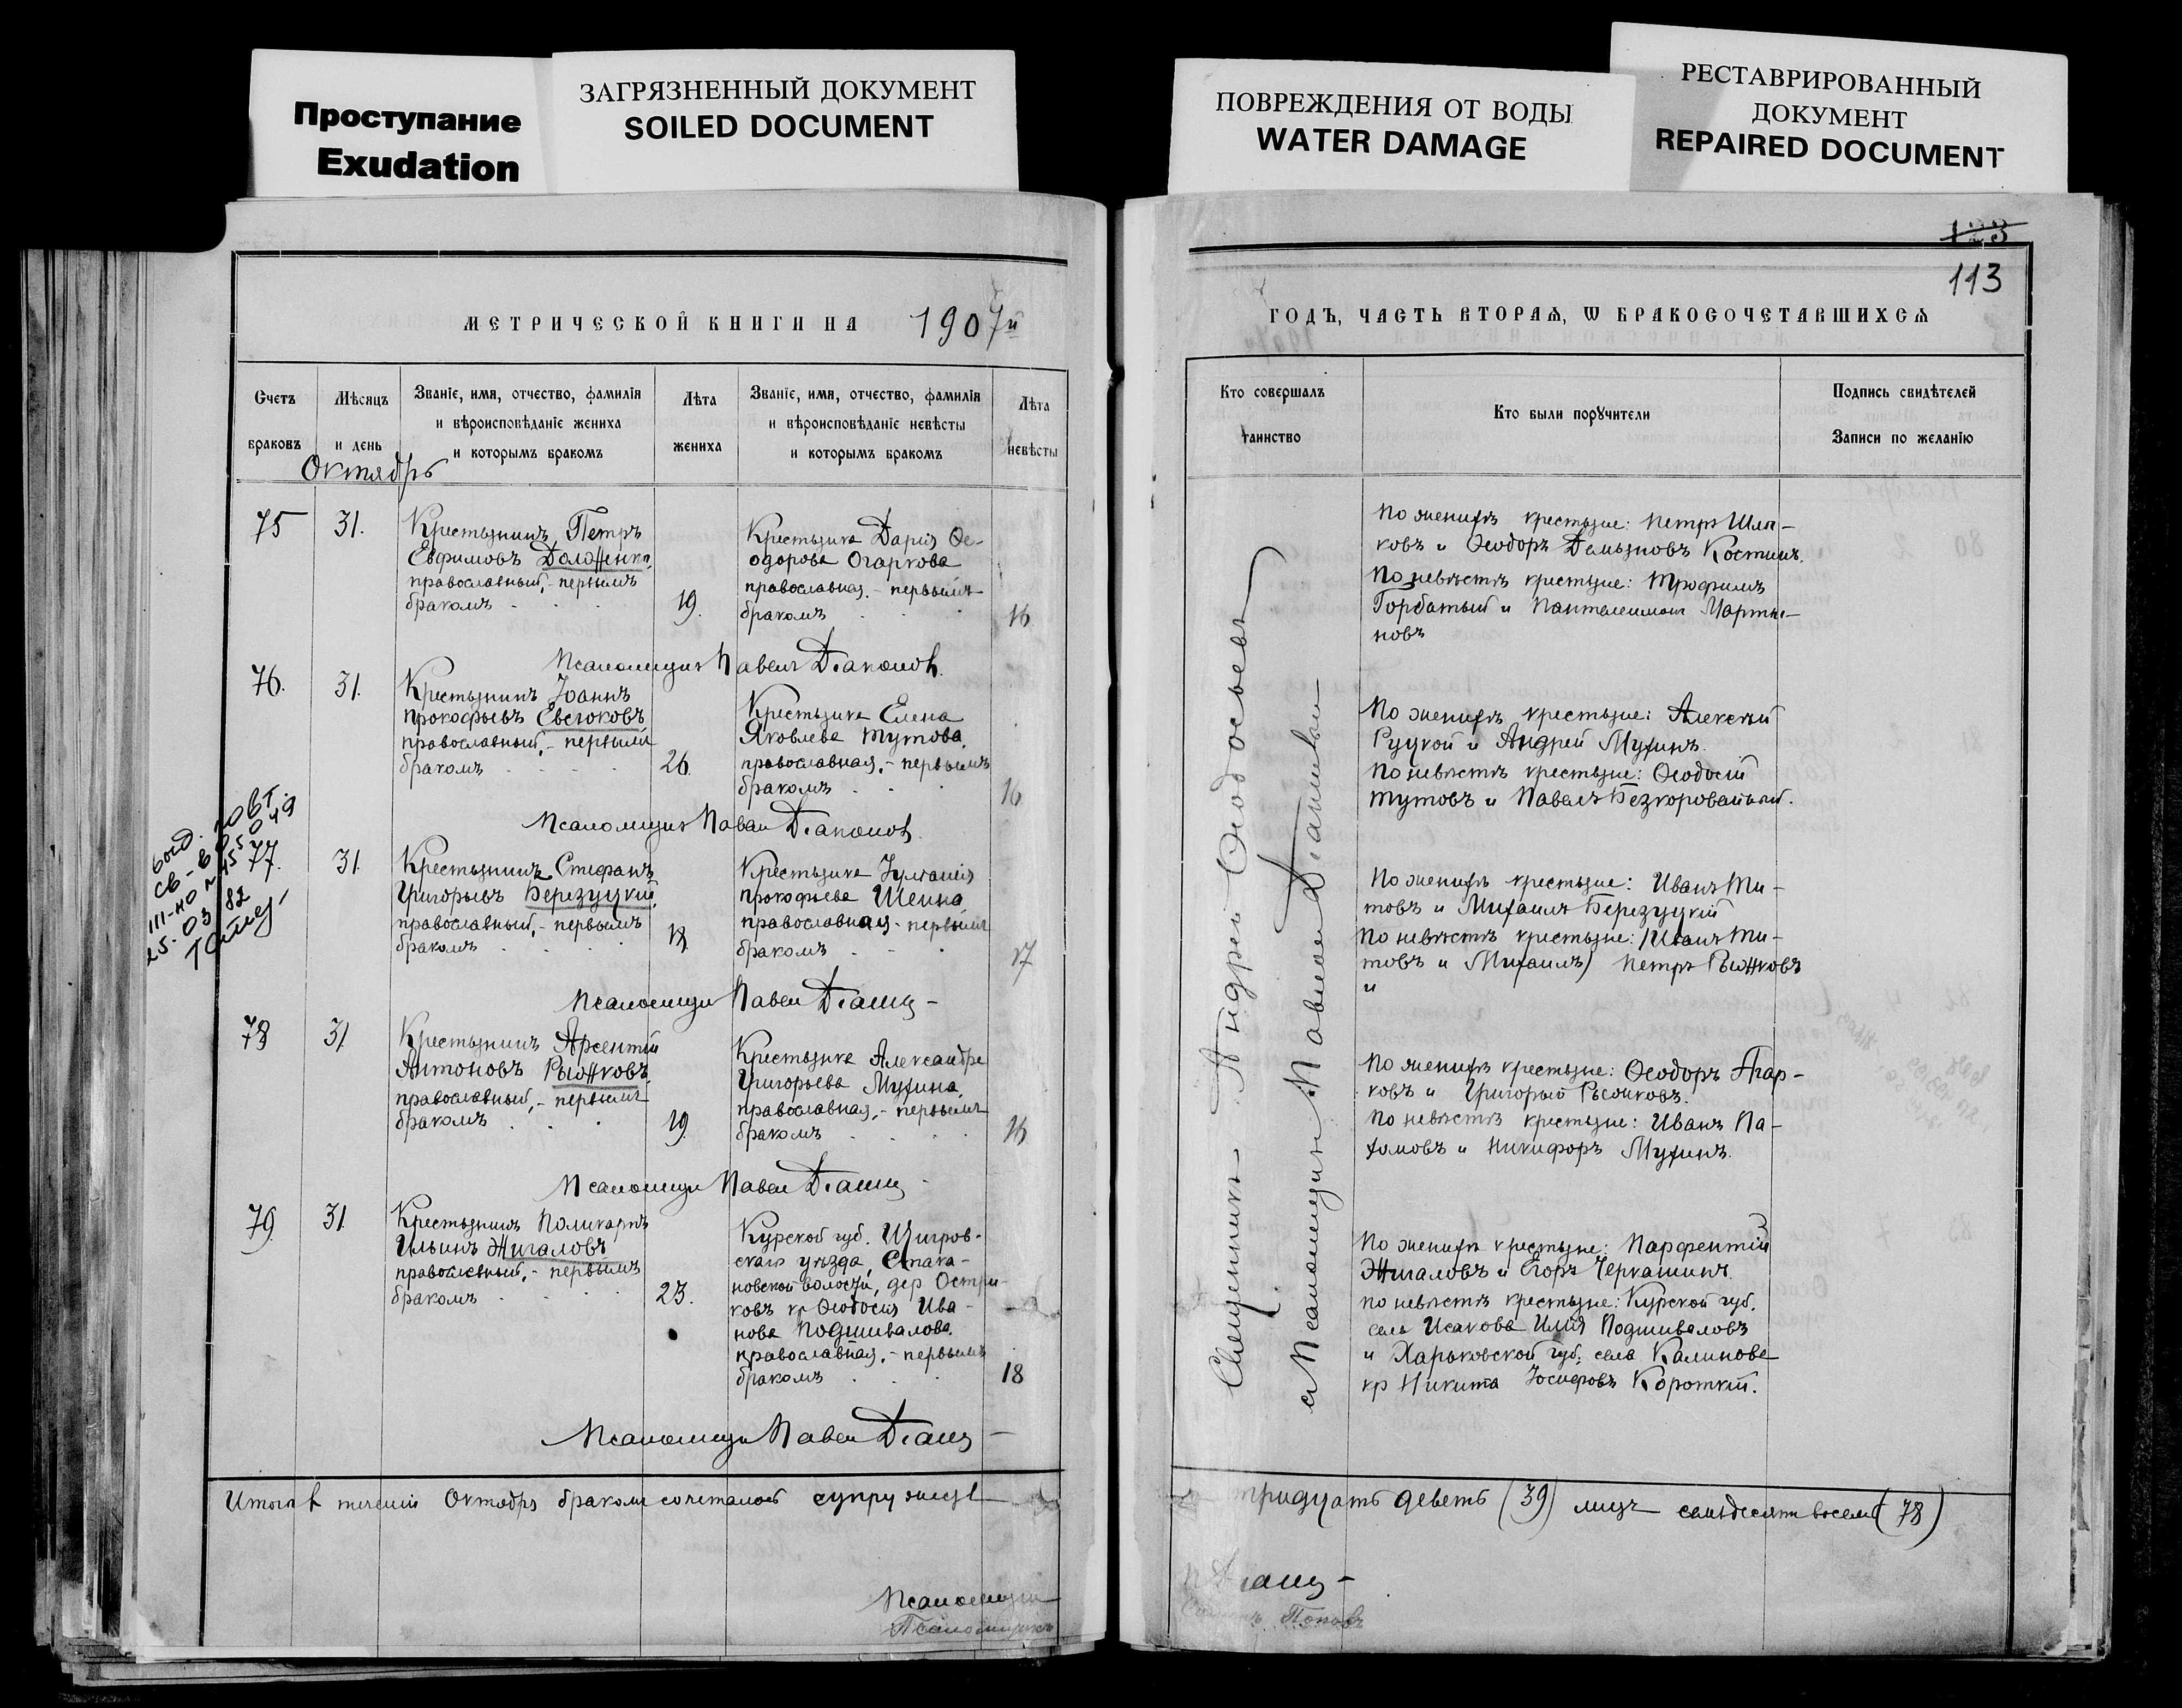 Проступание
Exudation
ЗАГРЯЗНЕННЫЙ ДОКУМЕНТ
SOILED DOCUMENT
ПОВРЕЖДЕНИЯ ОТ ВОДЫ
WATER DAMAGE
РЕСТАВРИРОВАННЫЙ
ДОКУМЕНТ
REPAIRED DOCUMENT
МЕТРИЧЕСКОЙ КНИГИ НА 1907й
Счетъ
браковъ
Мѣсяцъ
и день
Званіе, имя, отчество, фамилія
и вѣроисповѣданіе жениха
и которымъ бракомъ
Лѣта
жениха
Званіе, имя, отчество, фамилія
и вѣроисповѣданіе невѣсты
и которымъ бракомъ
Лѣта
невѣсты
Октябрь
75
31.
Крестьянинъ Петръ
Евфимовъ Долженко,
православный,- первымъ
бракомъ
19.
Крестьянка Дарія Ѳе-
одорова Огаркова
православная.- первымъ
бракомъ
16
Псаломщикъ Павелъ Діаконовъ
76.
31.
Крестьянинъ Іоаннъ
Прокофьевъ Евсюковъ
православный,- первымъ
бракомъ
26.
Крестьянка Елена
Яковлева Тутова,
православная,- первымъ
бракомъ
16
Псаломщикъ Павелъ Діаконовъ
77.
31.
Крестьянинъ Стефанъ
Григорьевъ Березуцкій,
православный,- первымъ
бракомъ
18
Крестьянка Іуліанія
Прокофьева Шеина
православная- первымъ
бракомъ
17
Псаломщикъ Павелъ
78
31
Крестьянинъ Арсентій
Антоновъ Рыжковъ,
православный,- первымъ
бракомъ
19.
Крестьянка Александра
Григорьева Мухина,
православная,- первымъ
бракомъ
16
Псаломщикъ Павелъ
79.
31
Крестьянинъ Поликарпъ
Ильинъ Жигаловъ
православный,- первымъ
бракомъ
23.
Курской губ. Щигров-
скаго уѣзда, Стака-
новской волости, дер Остри-
ковъ кр Ѳеодосія Ива-
нова Подшивалова.
православная.- первымъ
бракомъ
18
Псаломщикъ Павелъ
Итого въ теченіи Октября бракомъ сочеталось супружествъ
Псаломщикъ
Псаломщикъ
123
113
ГОДЪ, ЧАСТЬ ВТОРАѦ, Ѡ БРАКОСОЧЕТАВШИХСѦ
Кто совершалъ
таинство
Кто были порꙋчители
Подпись свидѣтелей
Записи по желанію
Священникъ Андрей Ѳеодосьевъ
съ Псаломщикомъ Павломъ
По женихѣ крестьяне: Петръ Шля-
ковъ и Ѳеодоръ Демьяновъ Костинъ.
По невѣстѣ крестьяне: Трофимъ
Горбатый и Пантелеимонъ Марты-
новъ
По женихѣ крестьяне: Алексѣй
Руцкой и Андрей Мухинъ.
По невѣстѣ крестьяне: Ѳеодосій
Тутовъ и Павелъ Безкоровайный.
По женихѣ крестьяне: Иванъ Ти-
товъ и Михаилъ Березуцкій
По невѣстѣ крестьяне: (Иванъ Ти-
товъ и Михаилъ) Петръ Рыжковъ
и
По женихѣ крестьяне: Ѳеодоръ
ковъ и Григорій Рыжковъ.
По невѣстѣ крестьяне: Иванъ Па-
хомовъ и Никифоръ Мухинъ.
По женихѣ крестьяне: Парфентій
Жигаловъ и Егоръ Черкашинъ
по невѣстѣ крестьяне: Курской губ.
села Исакова Илія Подшиваловъ
и Харьковской губ: села Калинова
кр Никита Іосифовъ Короткій.
тридцать девять (39) лицъ семьдесятъ восемь (78)
Поповъ